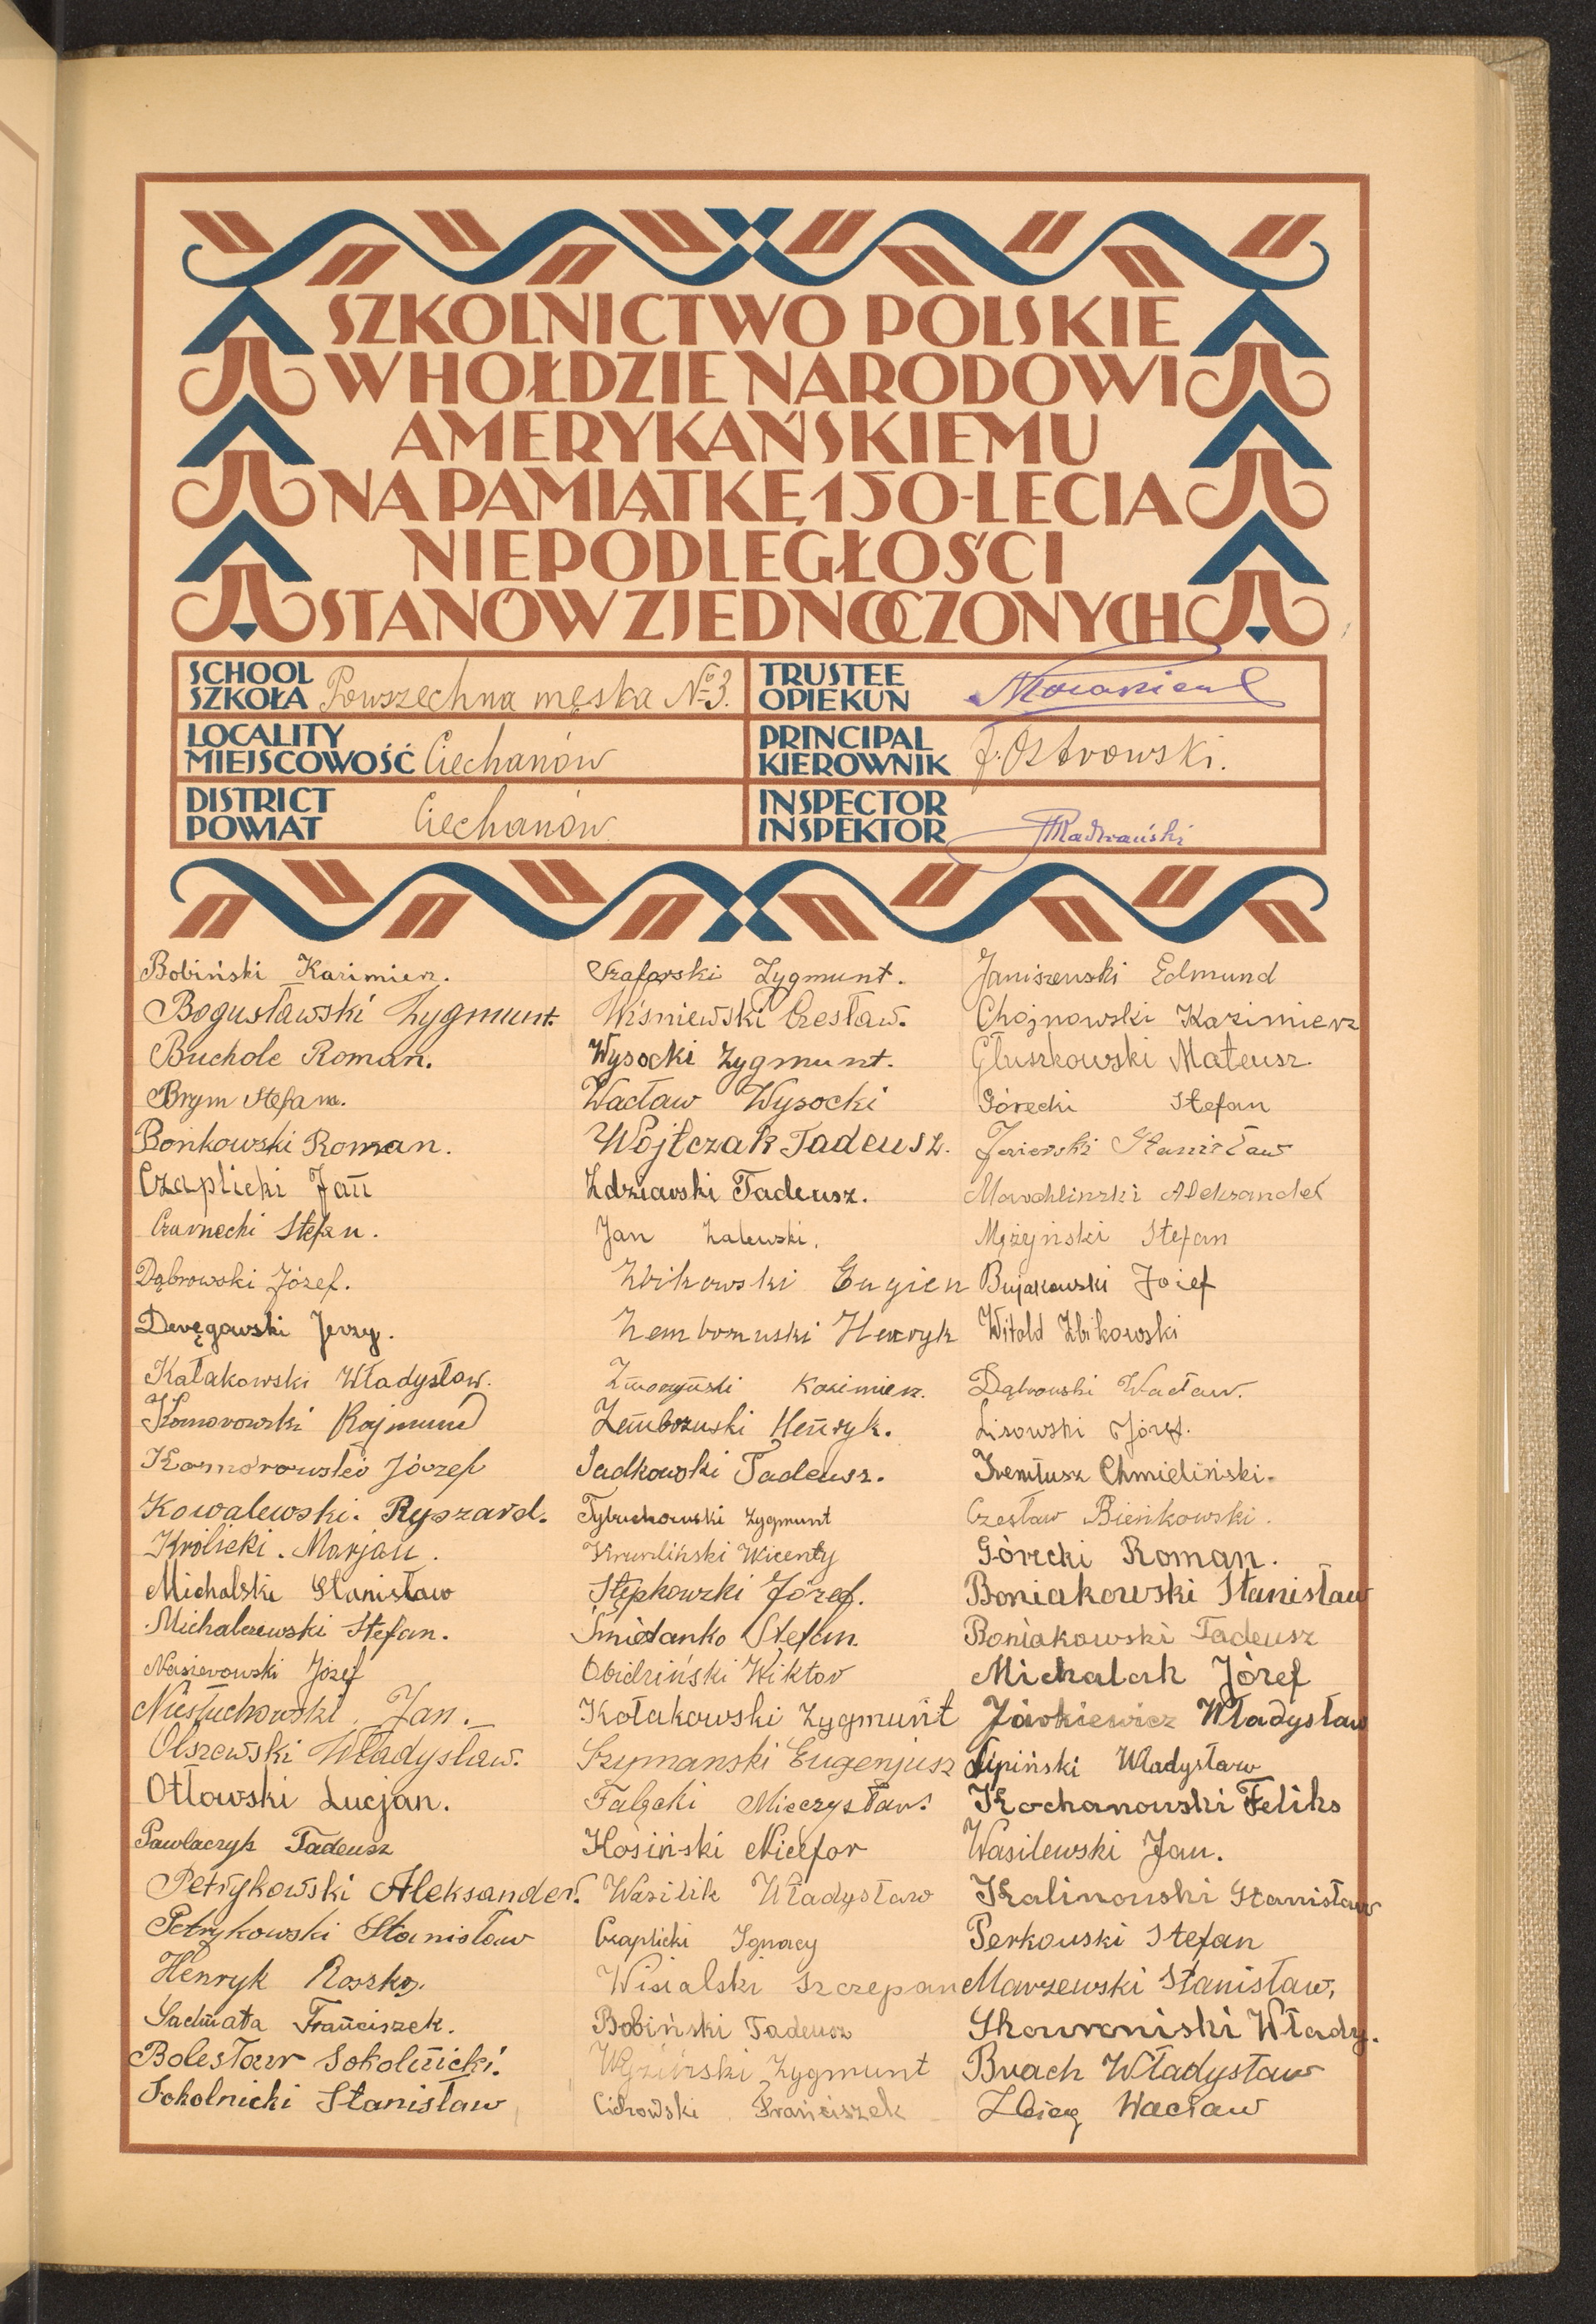 SZKOLNICTWO POLSKIE
W HOŁDZIE NARODOWI
AMERYKAŃSKIEMU
NA PAMIĄTKĘ 150-LECIA
NIEPODLEGŁOŚCI
STANÓW ZJEDNOCZONYCH
SCHOOL
SZKOŁA Powszechna męska № 3.
TRUSTEE
OPIEKUN
LOCALITY
MIEJSCOWOŚĆ Ciechanów
PRINCIPAL
KIEROWNIK J. Ostrowski.
DISTRICT
POWIAT Ciechanów
INSPECTOR
INSPEKTOR
Bobiński Kazimierz.
Bogusławski Zygmunt.
Bucholc Roman.
Brym Stefan.
Bońkowski Roman.
Czaplicki Jan
Czarnecki Stefan.
Dąbrowski Józef.
Deręgowski Jerzy.
Kałakowski Władysław.
Komorowski Rajmund
Komorowski Józef
Kowalewski. Ryszard.
Królicki. Marjan.
Michalski Stanisław
Michalczewski Stefan.
Nasierowski Józef
Niestuchowski. Jan.
Olszewski Władysław.
Ottowski Lucjan.
Pawlaczyk Tadeusz
Petrykowski Aleksander.
Petrykowski Stanisław
Henryk Roszko.
Sadŭata Franciszek.
Bolesław Sokolnicki.
Sokolnicki Stanisław
Szaforski Zygmunt.
Wiśniewski Czesław.
Wysocki Zygmunt.
Wacław Wysocki
Wojtczak Tadeusz.
Zdziarski Tadeusz.
Jan Zalewski.
Żbikowski Eugien
Zembrzuski Henryk
Kazimierz.
Zembrzuski Henryk.
Sadkowski Tadeusz.
Tybuchowski Zygmunt
Wicenty
Stępkowski Józef.
Śmietanko Stefan
Obidziński Wiktor
Kołakowski Zygmunt
Szymanski Eugenjusz
Falęcki Mieczysław.
Kosiński Nicefor
Wasilik Władysław
Czaplicki Ignacy
Wisialski Szczepan
Bobiński Tadeusz
Zygmunt
Cichowski Franciszek
Janiszewski Edmund
Chojnowski Kazimierz
Głuszkowski Mateusz
Górecki Stefan
Jezierski Stanisław
Marchlinski Aleksander
Mężyński Stefan
Bujakowski Józef
Witold Żbikowski
Dąbrowski Wacław.
Lisowski Józef.
Ireneusz Chmieliński.
Czesław Bieńkowski.
Górecki Roman.
Boniakowski Stanisław
Boniakowski Tadeusz
Michalak Józef
Jaśkiewicz Władysław
Lipiński Władysław
Kochanowski Feliks
Wasilewski Jan.
Kalinowski Stanisław
Perkowski Stefan
Marszewski Stanisław,
Skowroniski Włady.
Brach Władysław
Wacław